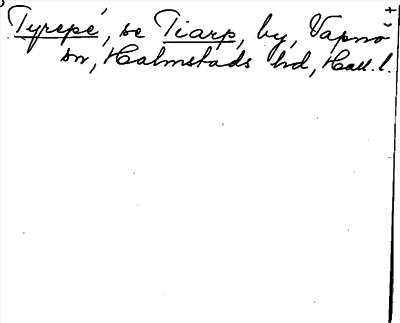 Tyrepé, se Tiarp, by, Vapnö
sn, Halmstads hd, Hall. l.